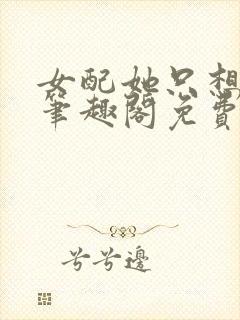 女配她只想
筆趣閣免費
兮兮邊